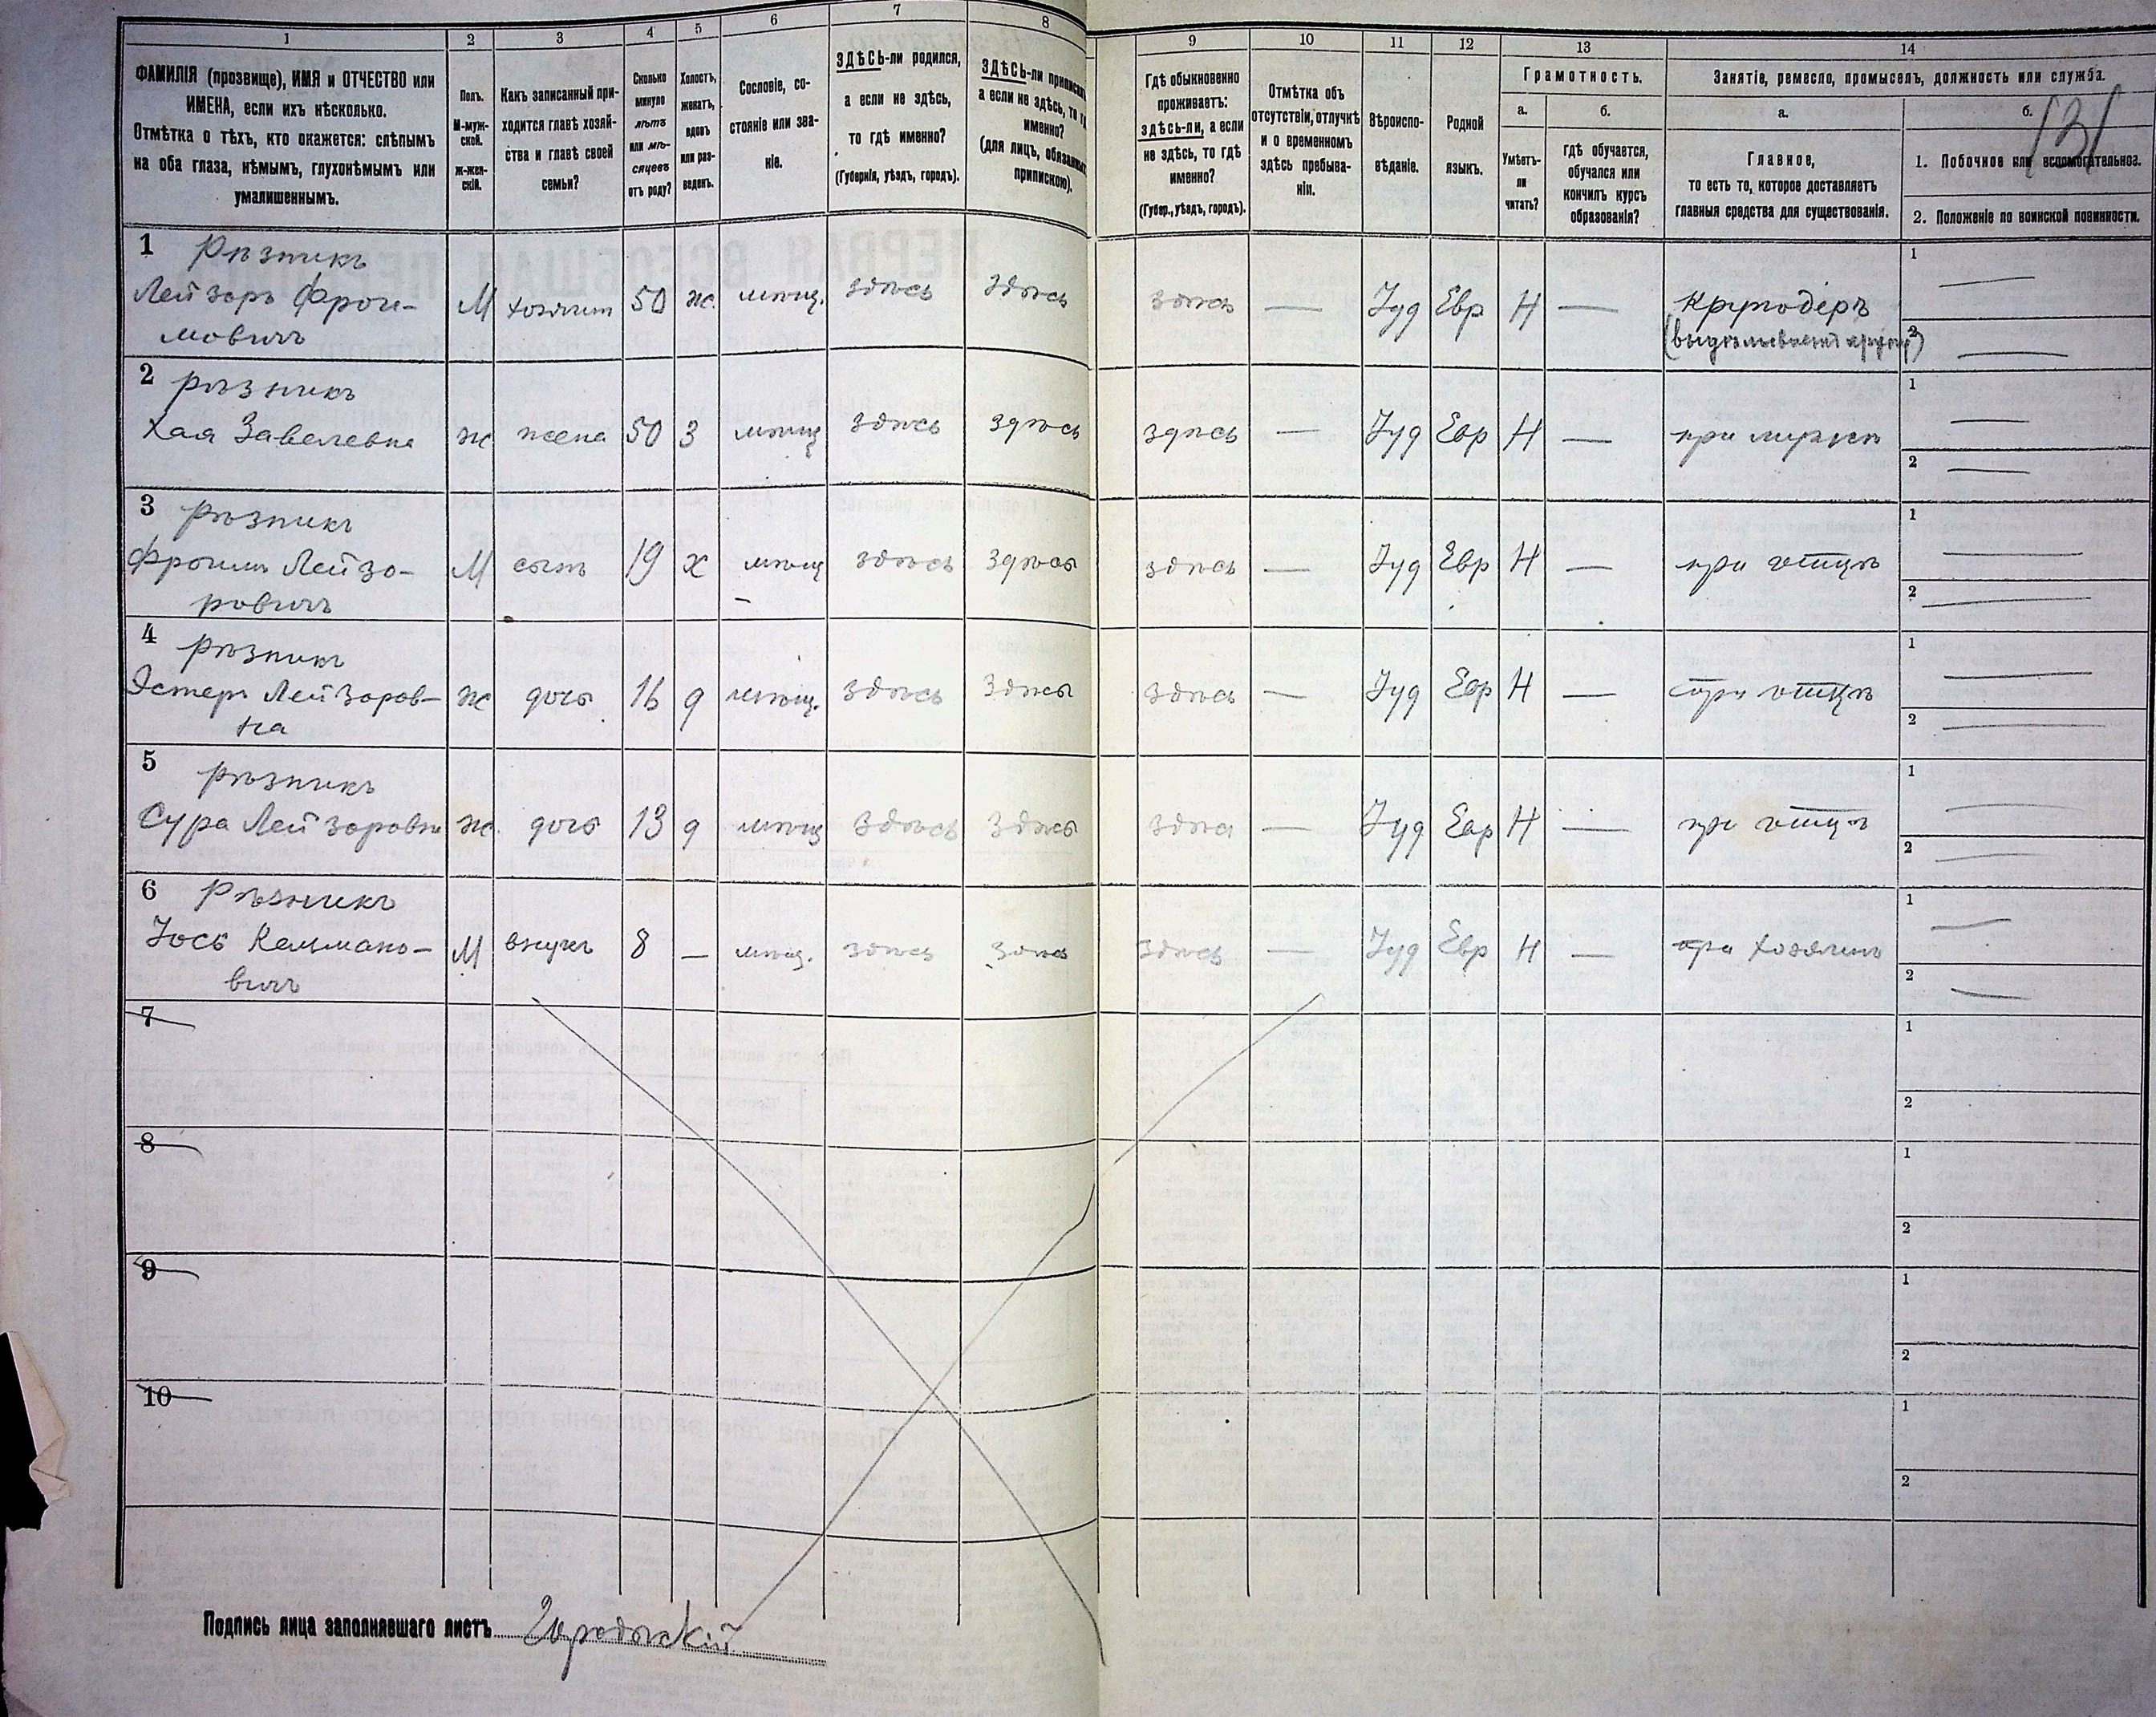 1
2
3
4
5
6
7
8
9
10
11
12
13
14
ФАМИЛІЯ (прозвище), ИМЯ и ОТЧЕСТВО или
ИМЕНА, если ихъ нѣсколько.
Отмѣтка о тѣхъ, кто окажется: слѣпымъ
на оба глаза, нѣмымъ, глухонѣмымъ или
умалишеннымъ.
Полъ.
М-муж-
ской.
Ж-жен-
скій.
Какъ записанный при-
ходится главѣ хозяй-
ства и главѣ своей
семьи?
Сколько
минуло
лѣтъ
или мѣ-
сяцевъ
отъ роду?
Холостъ,
женатъ,
вдовъ
или раз-
веденъ.
Сословіе, со-
стояніе или зва-
ніе.
ЗДѢСЬ-ли родился,
а если не здѣсь,
то гдѣ именно?
(Губернія, уѣздъ, городъ).
ЗДѢСЬ-ли приписанъ
а если не здѣсь, то гдѣ
именно?
(для лицъ, обязанныхъ
припискою).
Гдѣ обыкновенно
проживаетъ:
здѣсь-ли, а если
не здѣсь, то гдѣ
именно?
(Губер., уѣздъ, городъ).
Отмѣтка объ
отсутствіи, отлучкѣ
и о временномъ
здѣсь пребыва-
ніи.
Вѣроиспо-
вѣданіе.
Родной
языкъ.
Грамотность.
а.
б.
Умѣетъ-
ли
читать?
гдѣ обучается,
обучался или
кончилъ курсъ
образованія?
Занятіе, ремесло, промыселъ, должность или служба.
а.
б.
131
Главное,
то есть то, которое доставляетъ
главныя средства для существованія.
1. Побочное или вспомогательное.
2. Положеніе по воинской повинности.
1 Рѣзникъ
Лейзоръ Фрои-
мовичъ
М хозяинъ 50 ж. мѣщ. здѣсь здѣсь здѣсь — Іуд Евр Н — Круподеръ
(выдѣлываетъ крупу)
1 —
2 —
2 Рѣзникъ
Хая Завелевна ж жена 50 З мѣщ здѣсь здѣсь здѣсь — Іуд Евр Н — при мужѣ
1 —
2 —
3 Рѣзникъ
Фроимъ Лейзо-
ровичъ
М сынъ 19 х мѣщ здѣсь здѣсь здѣсь — Іуд Евр Н — при отцѣ
1 —
2 —
4 Рѣзникъ
Эстеръ Лейзоров-
на
ж дочь 16 д мѣщ. здѣсь здѣсь здѣсь — Іуд Евр Н — при отцѣ
1 —
2 —
5 Рѣзникъ
Сура Лейзоровна ж. дочь 13 д мѣщ здѣсь здѣсь здѣсь — Іуд Евр Н — при отцѣ
1 —
2 —
6 Рѣзникъ
Іось Кельмано-
вичъ
М внукъ 8 — мѣщ. здѣсь здѣсь здѣсь — Іуд Евр Н — при хозяинѣ
1 —
2 —
7
1
2
8
1
2
9
1
2
10
1
2
Подпись лица заполнявшаго листъ